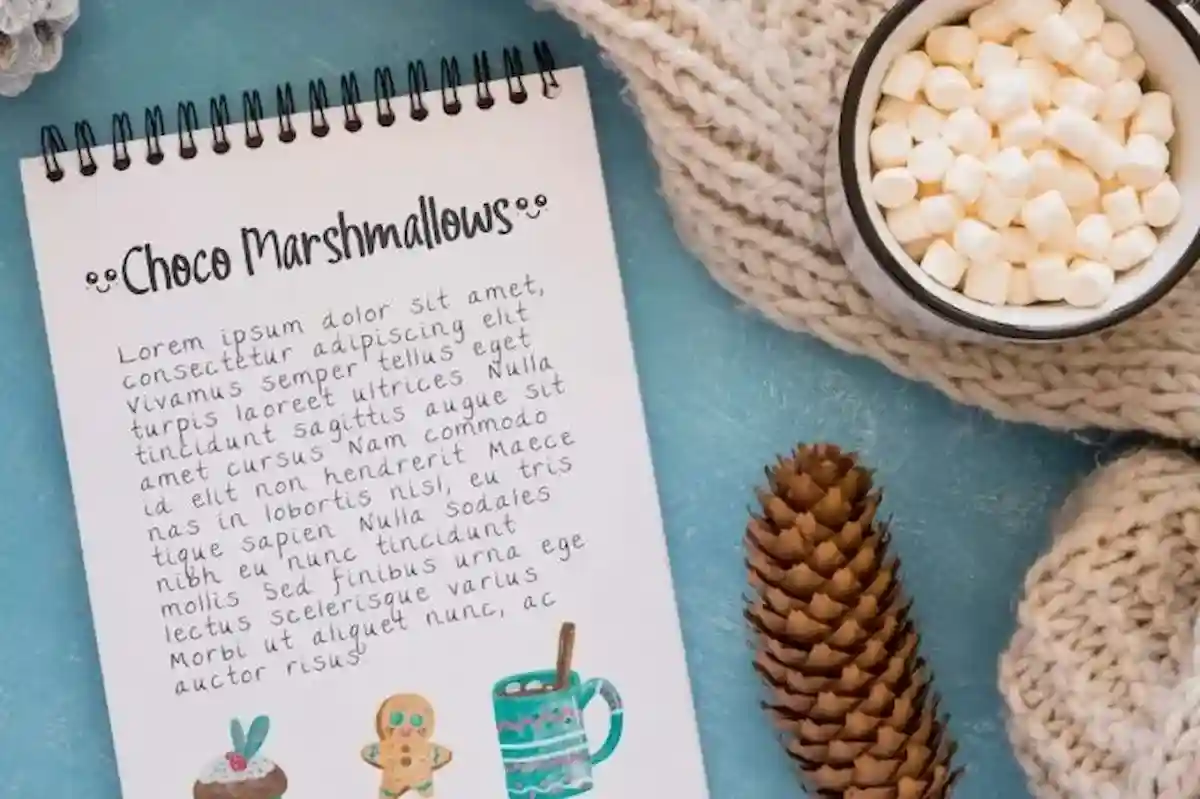 Choco Marshmallows
Lorem ipsum dolor sit amet,
consectetur adipiscing elit
vivamus semper tellus eget
turpis laoreet ultrices Nulla
tincidunt sagittis augue sit
amet cursus Nam commodo
id elit non hendrerit Maece
nas in lobortis nisl, eu tris
tique sapien Nulla sodales
nibh eu nunc tincidunt
mollis Sed finibus urna ege
lectus scelerisque varius
Morbi ut aliquet nunc, ac
auctor risus